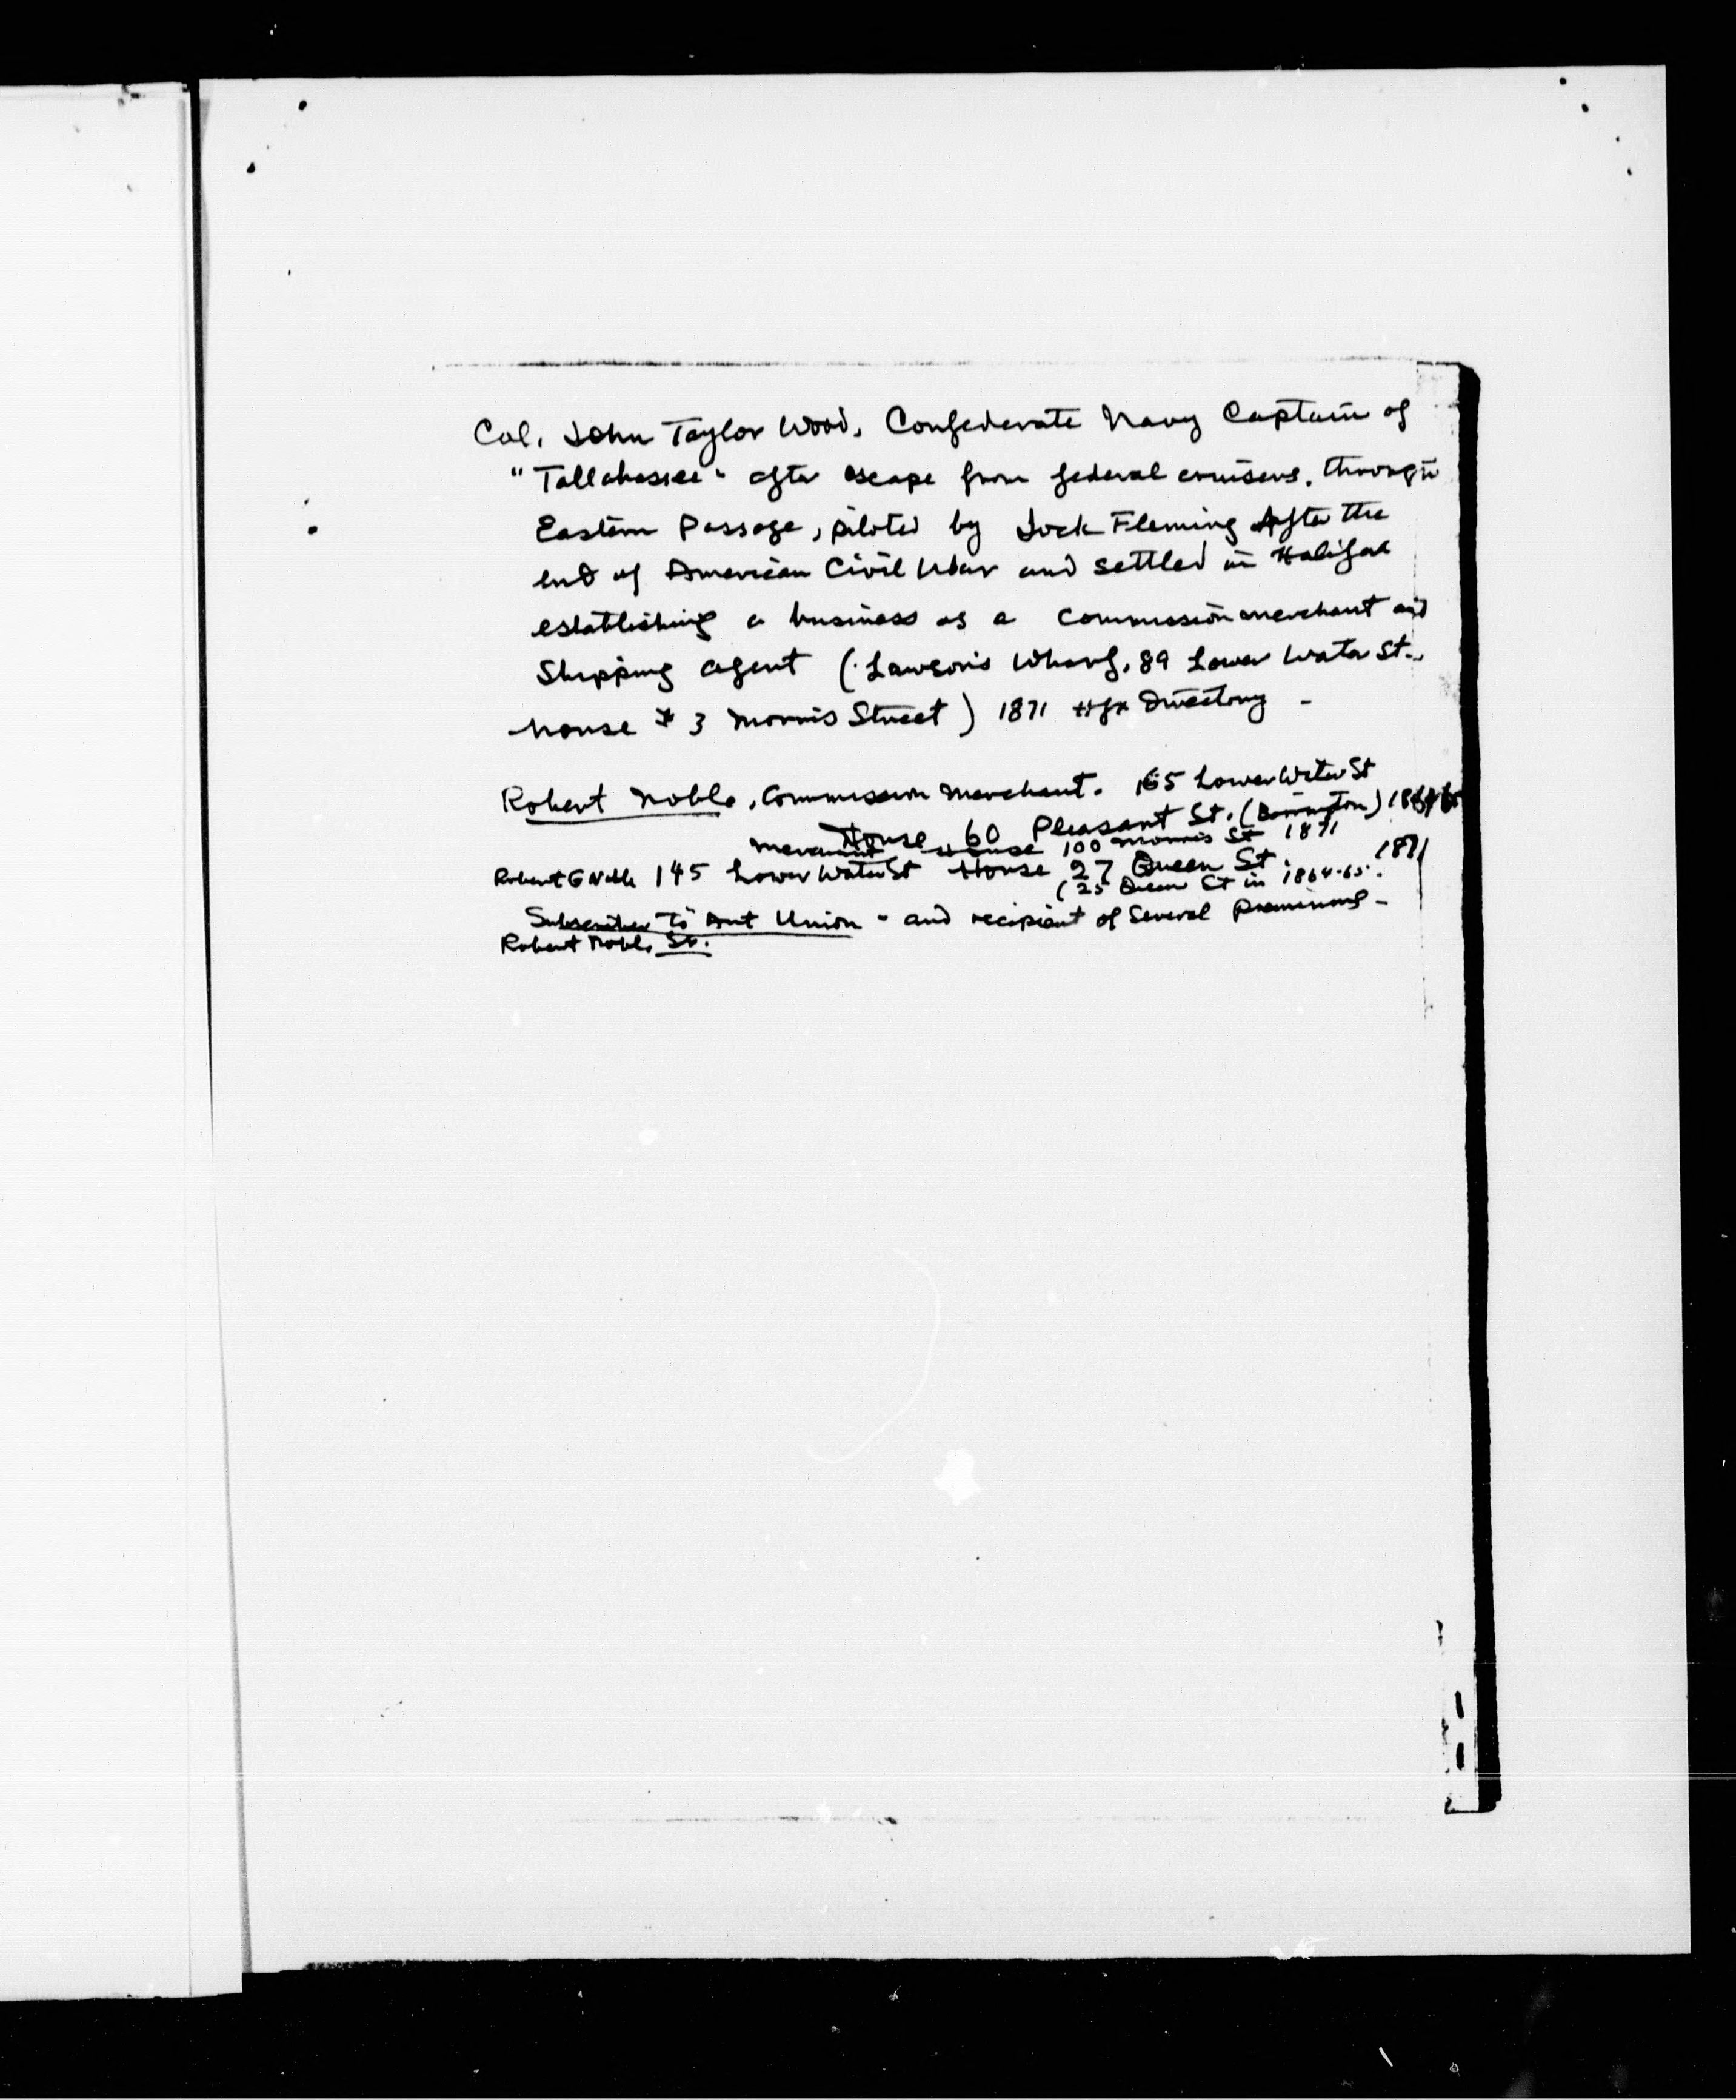 Col. John Taylor Wood, Confederate Navy Captain of
"Tallahassee" after escape from federal cruisers, through
Eastern Passage, piloted by Jock Fleming After the
end of American Civil War and settled in Halifax
establishing a business as a Commission merchant and
Shipping agent (Lawson's Wharf, 89 Lower Water St.,
house # 3 Morris Street) 1871 Hfx Directory -
Robert Noble, Commission Merchant. 165 Lower Water St
House 60 Pleasant St. (Barrington) 1864-65
Merchant House 100 Morris St 1871
Robert G Noble 145 Lower Water St House 27 Queen St 1871
(25 Queen St in 1864-65.
Subscriber to Art Union - and recipient of Several Premiums -
Robert Noble Sr.